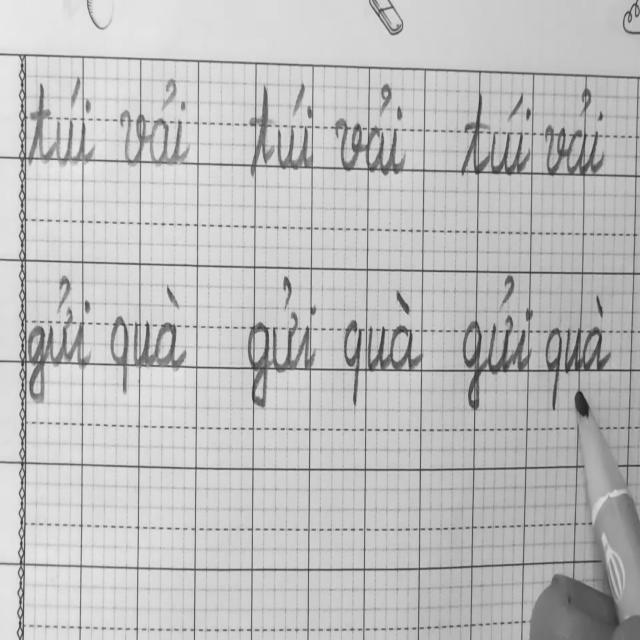 túi vải túi vải túi vải
gửi quà gửi quà gửi quà